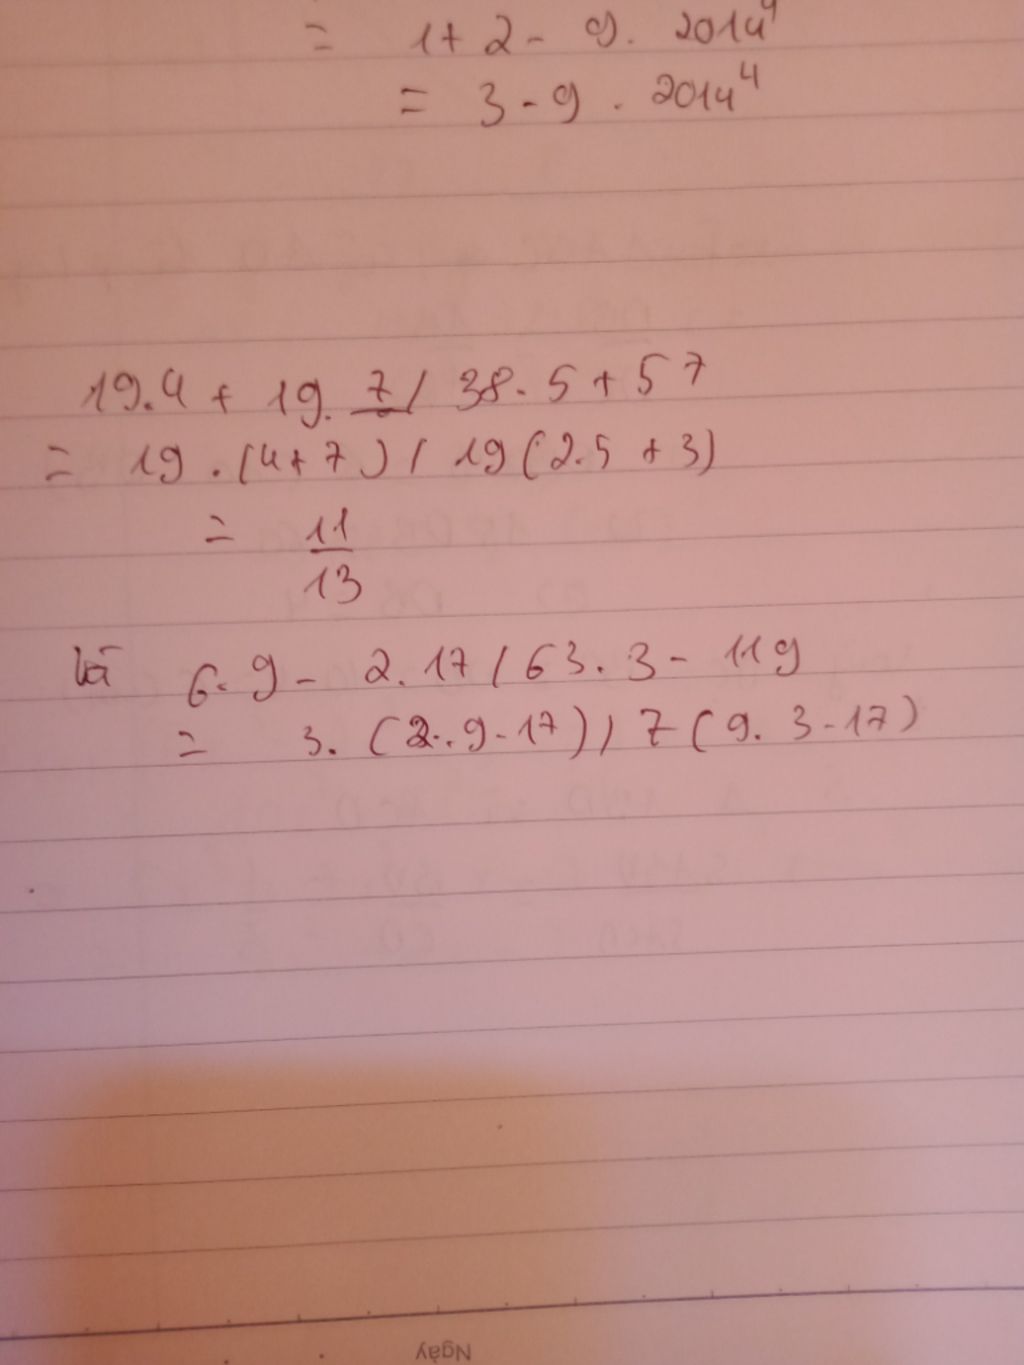 = 1+2-9.2014⁴
= 3-9.2014⁴
19.4 + 19.7 / 38.5 + 57
= 19.(4+7) / 19(2.5+3)
= 11/13
và 6.9 - 2.17 / 63.3 - 119
= 3.(2.9-17) / 7(9.3-17)
Ngày